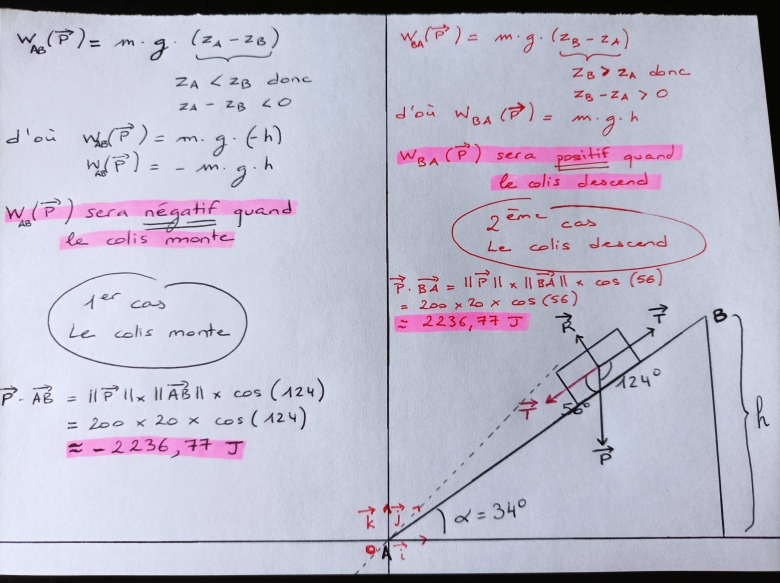 W_AB(P⃗) = m · g · (z_A − z_B)
z_A < z_B donc
z_A − z_B < 0
d'où W_AB(P⃗) = m · g · (−h)
W_AB(P⃗) = − m · g · h
W_AB(P⃗) sera négatif quand
le colis monte
1er cas
Le colis monte
P⃗ · AB⃗ = ||P⃗|| × ||AB⃗|| × cos (124)
= 200 × 20 × cos (124)
≈ − 2236,77 J
W_BA(P⃗) = m · g · (z_B − z_A)
z_B > z_A donc
z_B − z_A > 0
d'où W_BA(P⃗) = m · g · h
W_BA(P⃗) sera positif quand
le colis descend
2ème cas
Le colis descend
P⃗ · BA⃗ = ||P⃗|| × ||BA⃗|| × cos (56)
= 200 × 20 × cos (56)
≈ 2236,77 J
R⃗
T⃗
B
124°
T⃗
56°
h
P⃗
k⃗ j⃗
α = 34°
O A i⃗